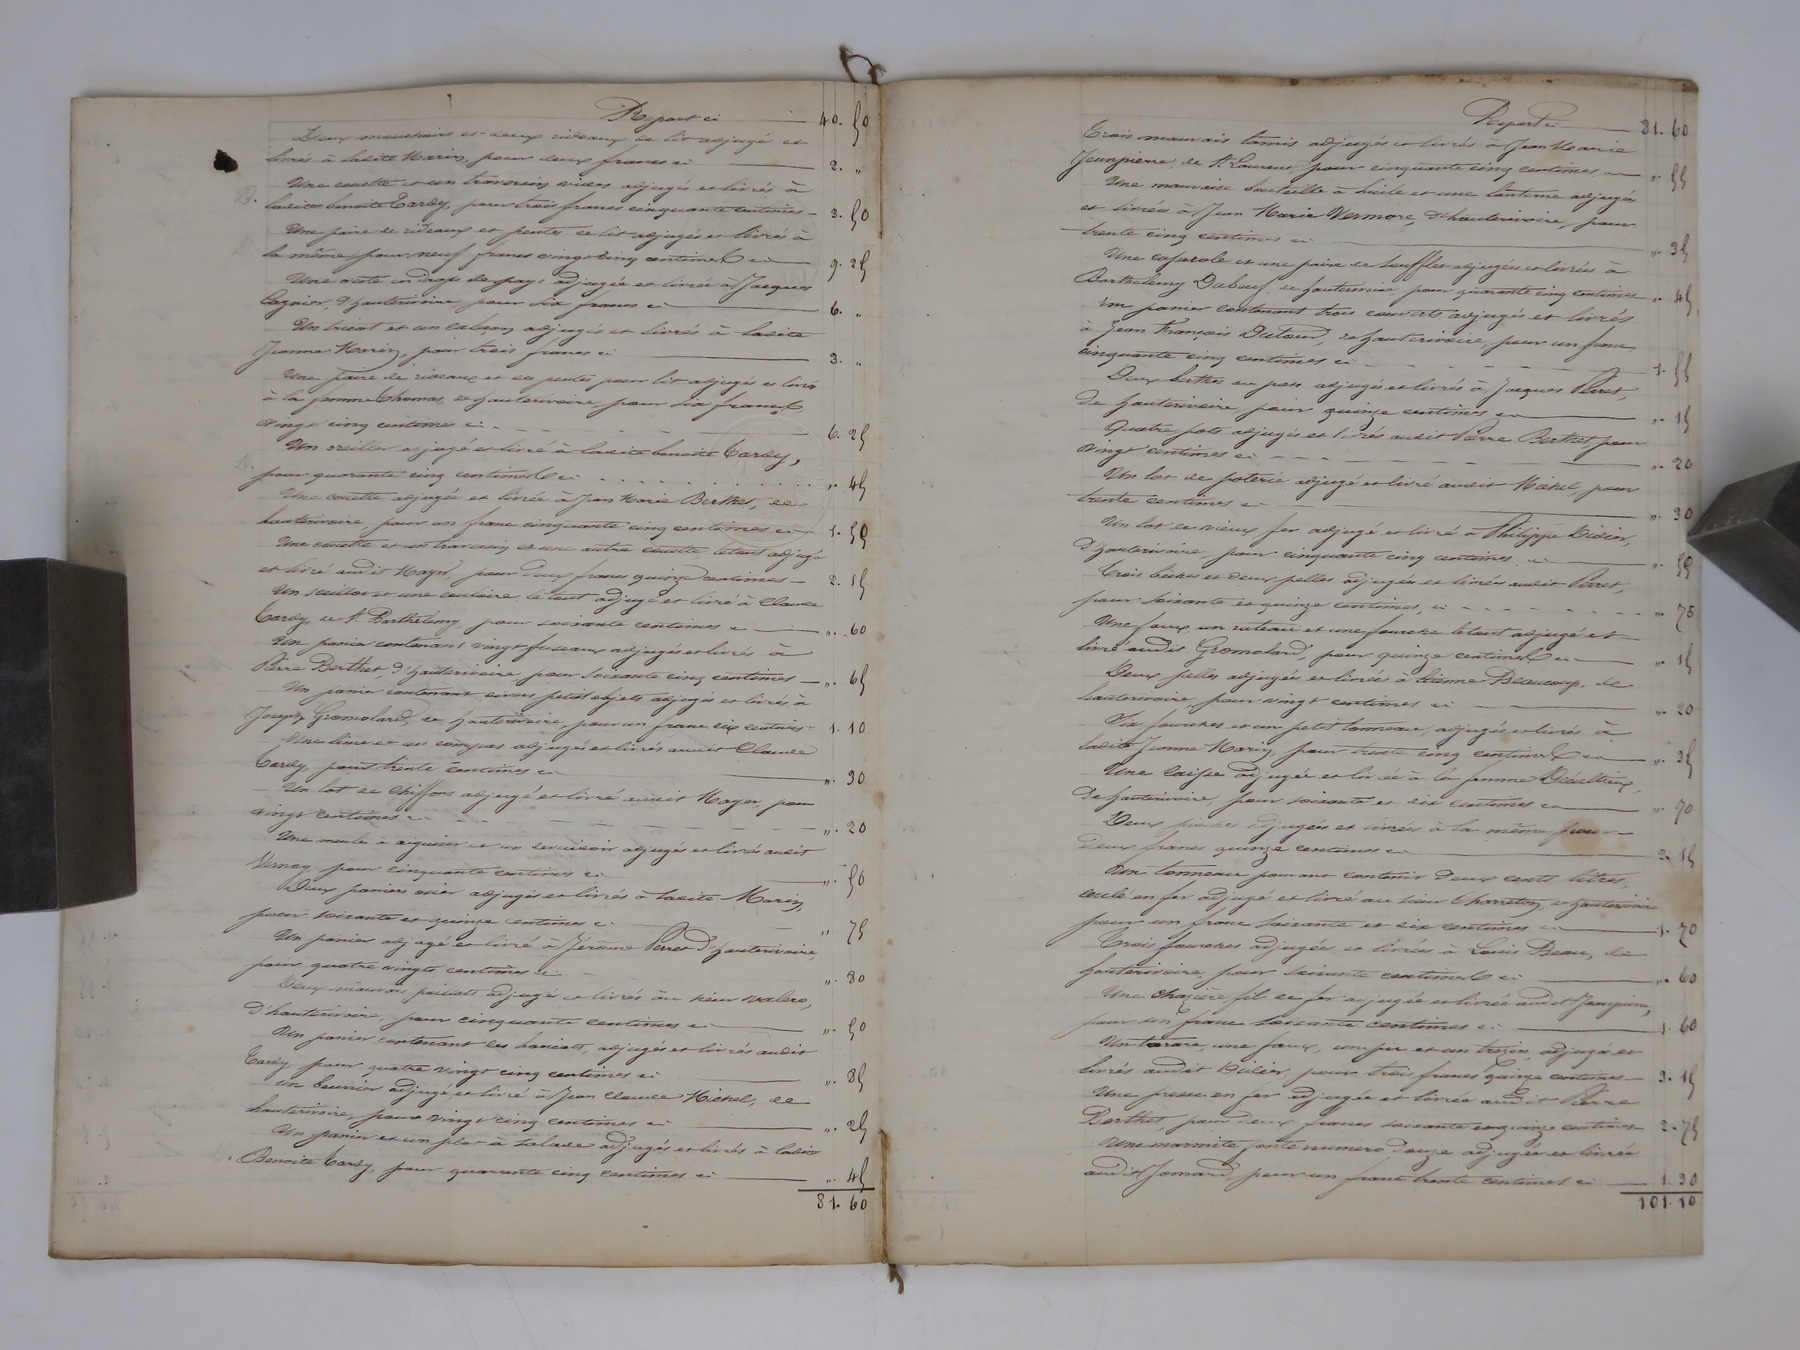 Report ci 40. 50
Deux mouchoirs et deux rideaux de lit adjugés et
livrés à ladite Marin, pour deux francs ci 2. "
Une couette et un traversin vides adjugés et livrés à
ladite benoite Tardy, pour trois francs cinquante centimes 3. 50
Une paire de rideaux et pentes de lit adjugés et livrés à
la même pour neuf francs vingt cinq centimes ci 9. 25
Une veste en drap de pays adjugée et livrée à Jacques
Cognier, d'hauterivoire, pour six francs ci 6. "
Un tricot et un caleçon adjugés et livrés à ladite
Jeanne Marin, pour trois francs ci 3. "
Une paire de rideaux et des pentes pour lit adjugés et livrés
à la femme Thomas, de hauterivoire, pour six francs
vingt cinq centimes ci 6. 25
Un oreiller adjugé et livré à ladite benoite Tardy,
pour quarante cinq centimes ci ". 45
Une couette adjugée et livrée à Jean Marie Berthet, de
hauterivoire, pour un franc cinquante cinq centimes ci 1. 55
Une couette et un traversin et une autre couette le tout adjugé
et livré audit Mayet, pour deux francs quinze centimes 2. 15
Un seillot et une couloire, le tout adjugé et livré à Claude
Tardy de St. Barthélemy, pour soixante centimes ci ". 60
Un panier contenant vingt fuseaux adjugés et livrés à
Pierre Berthet, d'hauterivoire pour soixante cinq centimes ". 65
Un panier contenant divers petits objets adjugés et livrés à
Joseph Gromolard, de hauterivoire, pour un franc dix centimes 1. 10
Une lime et un compas adjugés et livrés audit Claude
Tardy, pour trente centimes ci ". 30
Un lot de chiffons adjugé et livré audit Mayet, pour
vingt centimes ci ". 20
Une meule à aiguiser et un adjugés et livrés audit
Vernay, pour cinquante centimes ci ". 50
Deux paniers osier adjugés et livrés à ladite Marin,
pour soixante et quinze centimes ci " 75
Un panier adjugé et livré à Jérôme Perret d'hauterivoire,
pour quatre vingts centimes ci ". 80
Deux mauvais adjugés et livrés au sieur
d'hauterivoire, pour cinquante centimes ci ". 50
Un panier contenant des haricots, adjugés et livrés audit
Tardy pour quatre vingt cinq centimes ci ". 85
Un beurrier adjugé et livré à Jean Claude Michel, de
hauterivoire, pour vingt cinq centimes ci ". 25
Un panier et un plat à salade adjugés et livrés à ladite
Benoite Tardy, pour quarante cinq centimes ci ". 45
81. 60
Report ci 81. 60
Trois mauvais tamis adjugés et livrés à Jean Marie
Jeanpierre, de St. Laurent, pour cinquante cinq centimes, ci ". 55
Une mauvaise bouteille à huile et une lanterne adjugés
et livrés à Jean Marie Vermare, d'hauterivoire, pour
trente cinq centimes ci ". 35
Une casserole et une paire de soufflet adjugés et livrés à
Barthelemy Duboeuf, de hauterivoire, pour quarante cinq centimes ". 45
Un panier contenant trois couverts adjugés et livrés
à Jean François Dutour, de hauterivoire, pour un franc
cinquante cinq centimes ci 1. 55
Deux berthes en adjugés et livrés à Jacques Perret,
de hauterivoire, pour quinze centimes ci ". 15
Quatre pots adjugés et livrés audit Pierre Berthet, pour
vingt centimes ci ". 20
Un lot de poterie adjugé et livré audit Michel, pour
trente centimes ci ". 30
Un lot de vieux fer adjugé et livré à Philippe Didier,
d'hauterivoire, pour cinquante cinq centimes, ci ". 55
Trois bêches et deux pelles adjugés et livrés audit Perret,
pour soixante et quinze centimes, ci ". 75
Une faux, un rateau et une fourche le tout adjugé et
livré audit Gromolard, pour quinze centimes ci ". 15
Deux pelles adjugés et livrés à Etienne Beaucoup, de
hauterivoire, pour vingt centimes ci ". 20
Six fourches et un petit tonneau, adjugés et livrés à
ladite Jeanne Marin, pour trente cinq centimes ci ". 35
Une caisse adjugée et livrée à la femme
de hauterivoire, pour soixante et dix centimes ci ". 70
Deux adjugés et livrés à la même pour
deux francs quinze centimes ci 2. 15
Un tonneau pouvant contenir deux cents litres,
cerclé en fer adjugé et livré au sieur Charreton, de hauterivoire
pour un franc soixante et dix centimes ci 1. 70
Trois fourches adjugés et livrés à Louis Beau, de
hauterivoire, pour soixante centimes ci ". 60
Une fil de fer adjugée et livrée audit Jeanpierre,
pour un franc soixante centimes ci 1. 60
Un tarare, une faux, un pic et un adjugés et
livrés audit Didier, pour trois francs quinze centimes 3. 15
Une presse en fer adjugée et livrée audit Pierre
Berthet pour deux francs soixante et quinze centimes 2. 75
Une marmite fonte numéro douze adjugée et livrée
audit Jomard, pour un franc trente centimes ci 1. 30
101. 10